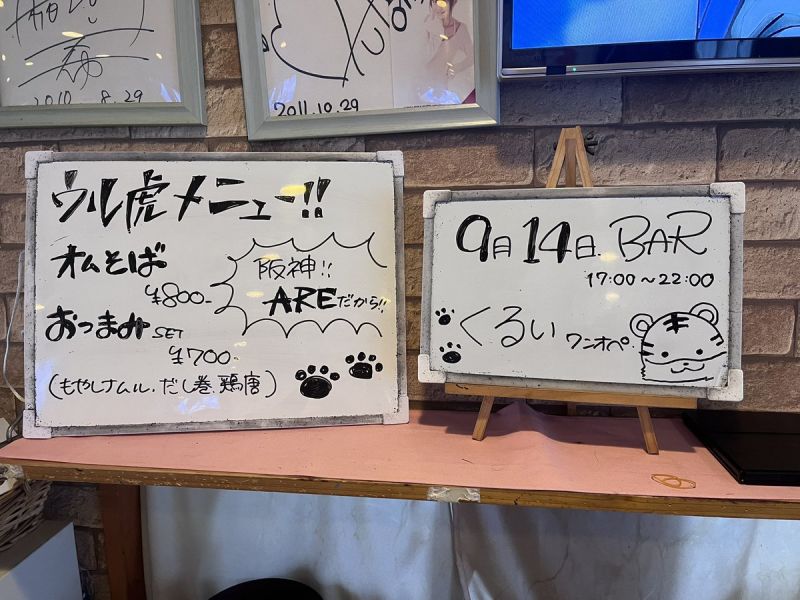 2010.8.29
2011.10.29
ウル虎メニュー!!
オムそば
¥800-
おつまみSET
¥700-
(もやしナムル.だし巻.鶏唐)
阪神!!
AREだから!!
9月14日.BAR
17:00~22:00
くるい ワンオペ.